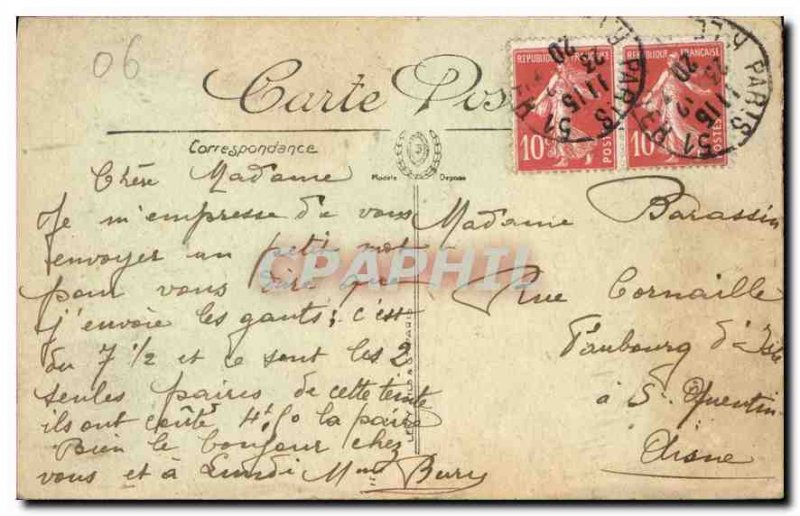 06
Carte Pos
Correspondance
Modèle Déposé
RÉPUBLIQUE FRANÇAISE
10c
POSTES
RÉPUBLIQUE FRANÇAISE
10c
POSTES
PARIS
11 15
20
51
PARIS
11 15
20
51
CPAPHIL
Chère Madame
Je m'empresse de vous
envoyer un petit mot
pour vous dire que
j'envoie les gants; c'est
du 7 1/2 et ce sont les 2
seules paires de cette teinte
ils ont coûté 4f,50 la paire
Bien le bonjour chez
vous et à Lundi Mme Bury
Madame Barassin
Rue Cornaille
Faubourg d'Isle
à St Quentin
Aisne